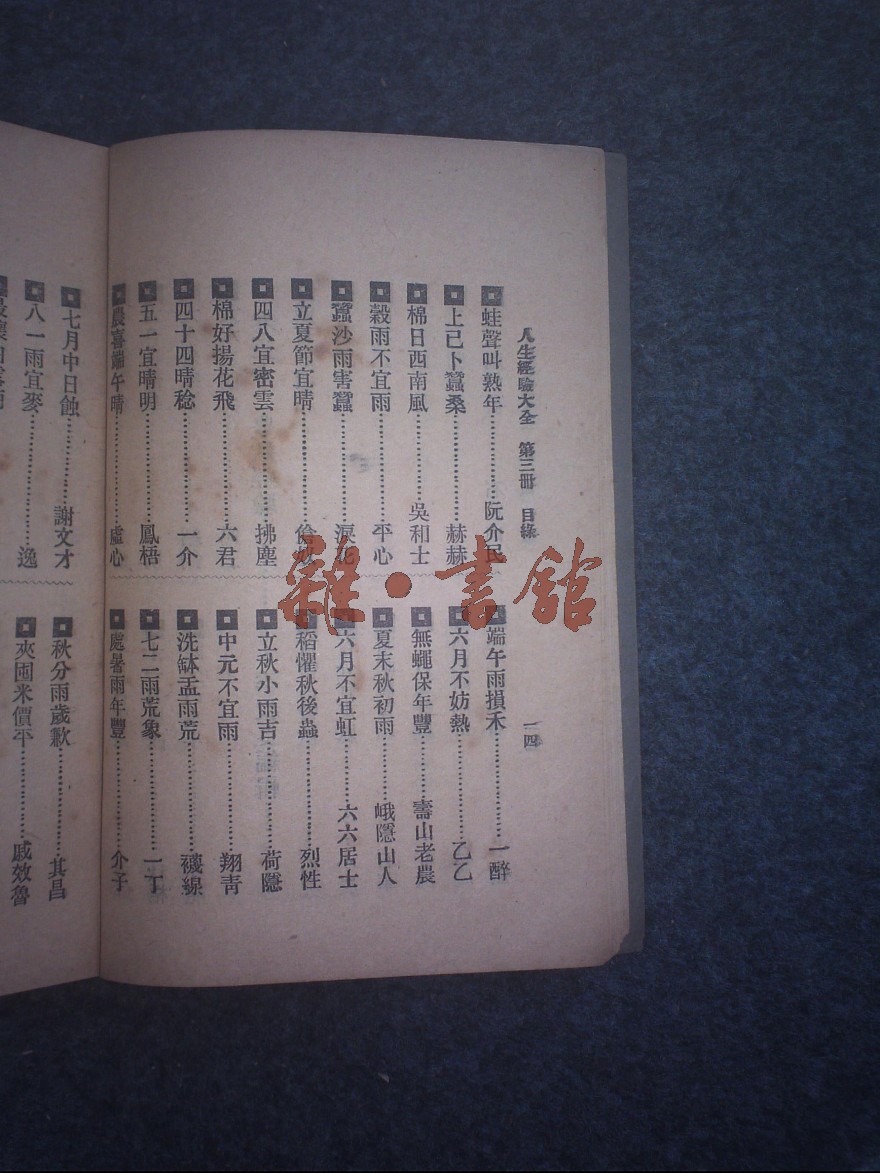 人生經驗大全 第三冊 目錄 一四
蛙聲叫熟年⋯⋯⋯阮介民
上巳卜蠶桑⋯⋯⋯赫赫
棉日西南風⋯⋯⋯吳和士
穀雨不宜雨⋯⋯⋯平心
蠶沙雨害蠶⋯⋯⋯淚花
立夏節宜晴⋯⋯⋯
四八宜密雲⋯⋯⋯拂塵
棉好揚花飛⋯⋯⋯六君
四十四晴稔⋯⋯⋯一介
五一宜晴明⋯⋯⋯鳳梧
農喜端午晴⋯⋯⋯虛心
端午雨損禾⋯⋯⋯一醉
六月不妨熱⋯⋯⋯乙乙
無蠅保年豐⋯⋯⋯壽山老農
夏末秋初雨⋯⋯⋯峨隱山人
六月不宜虹⋯⋯⋯六六居士
稻懼秋後蟲⋯⋯⋯烈性
立秋小雨吉⋯⋯⋯荷隱
中元不宜雨⋯⋯⋯翔青
洗缽盂雨荒⋯⋯⋯襪線
七二雨荒象⋯⋯⋯一丁
處暑雨年豐⋯⋯⋯介子
七月中日蝕⋯⋯⋯謝文才
八一雨宜麥⋯⋯⋯逸
秋分雨歲歉⋯⋯⋯其昌
夾囤米價平⋯⋯⋯戚效魯
雜·書館